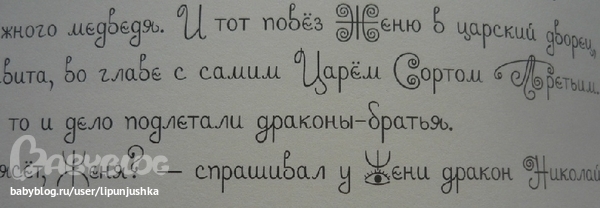 жного медведя. И тот повёз Женю в царский дворец,
вита, во главе с самим Царём Сортом Третьим.
то и дело подлетали драконы-братья.
Женя? — спрашивал у Жени дракон Николай
BABYBLOG
babyblog.ru/user/lipunjushka